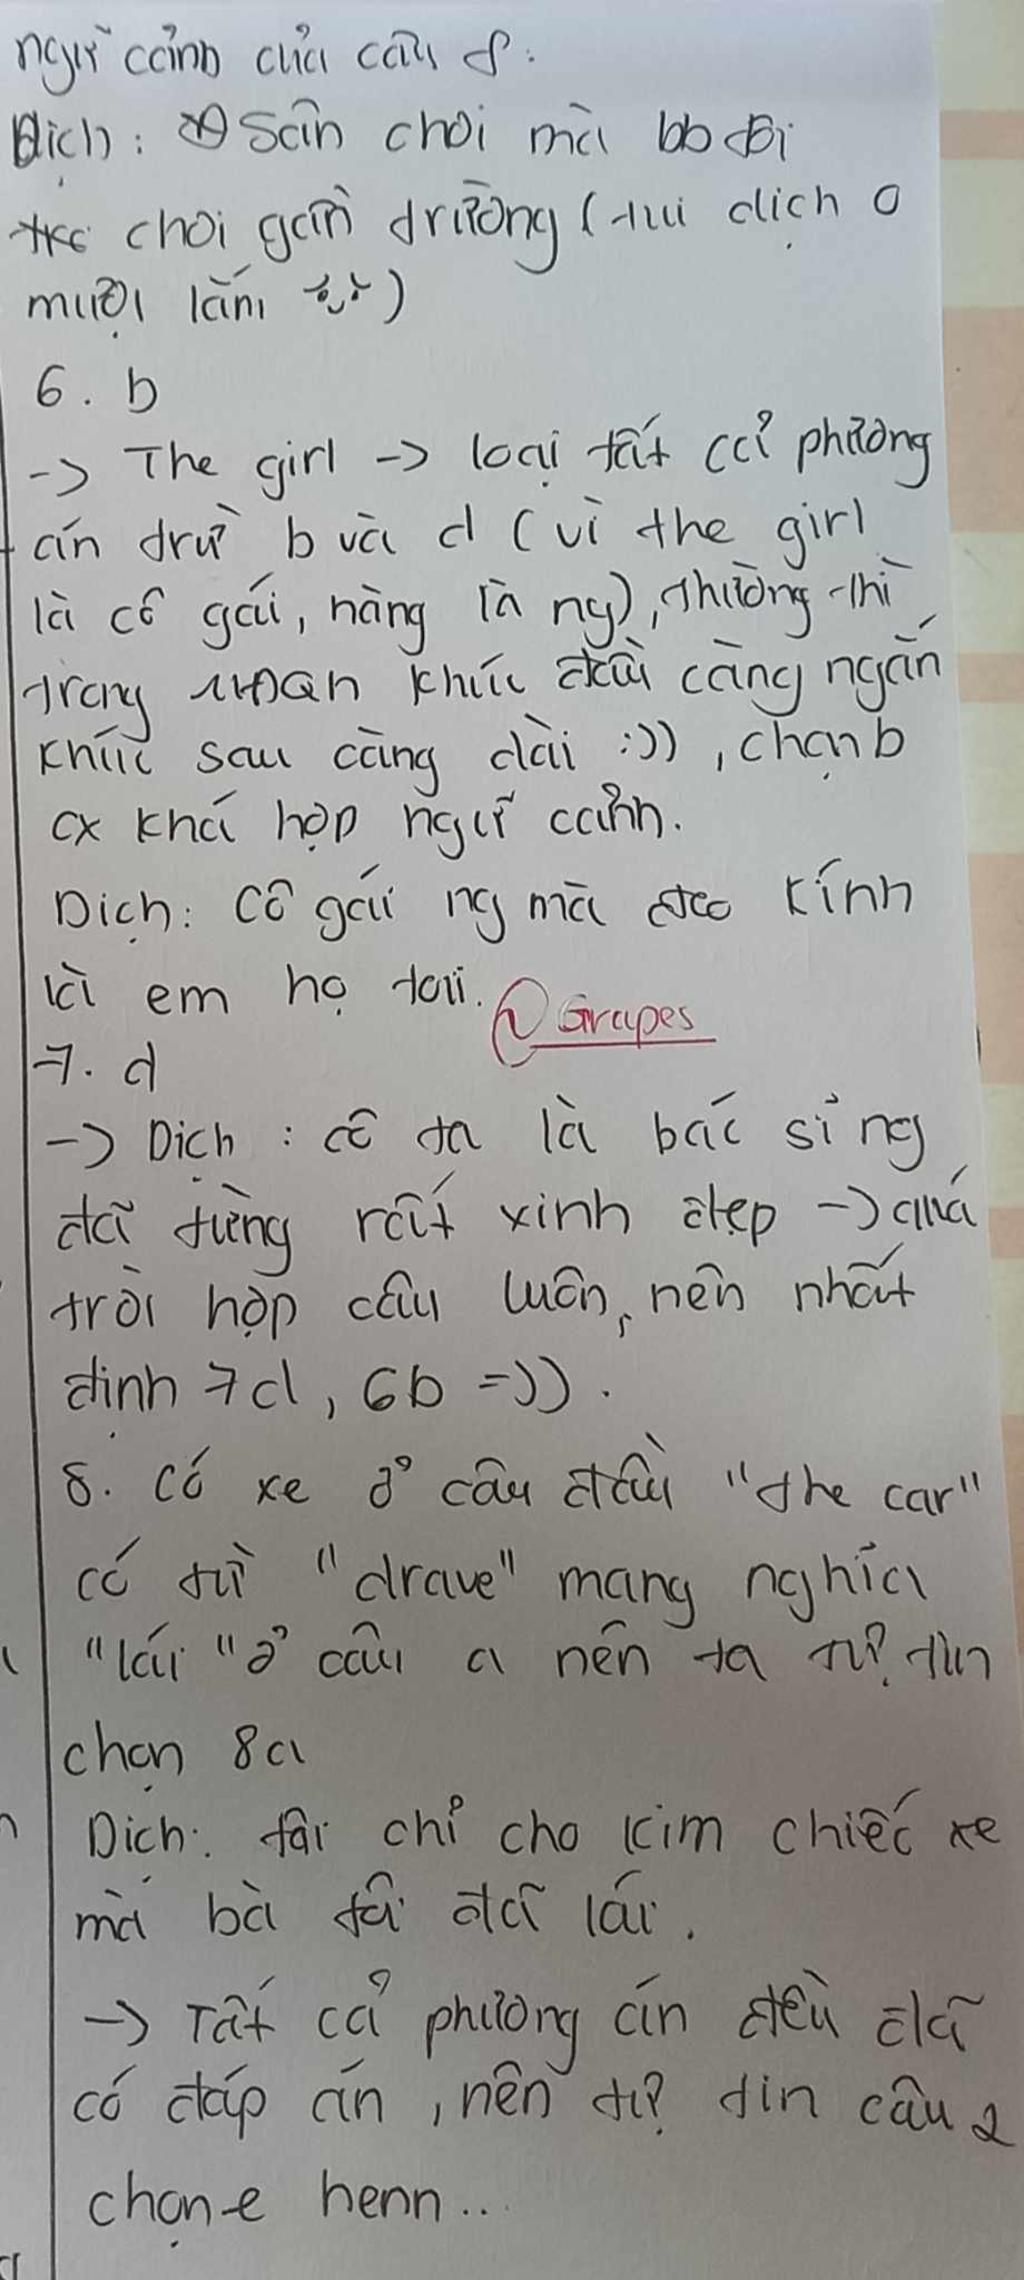 ngữ cảnh của câu f.
Dịch: Sân chơi mà bb đi
chơi gần trường (tui dịch o
mượt lắm)
6. b
-> The girl -> loại tất cả phương
án trừ b và d (vì the girl
là cô gái, nàng là ng), thường thì
trong khúc đầu càng ngắn
khúc sau càng dài :)), chọn b
cx khá hợp ngữ cảnh.
Dịch: Cô gái ng mà đeo kính
là em họ tôi.
@Grapes
7. d
-> Dịch: cô ta là bác sỉ ng
đã từng rất xinh đẹp -> quá
trời hợp câu luôn, nên nhất
định 7d, 6b =)).
8. Có xe ở câu đầu "the car"
có từ "drave" mang nghĩa
"lái" ở câu a nên ta tự tin
chọn 8a
Dịch: tôi chỉ cho Kim chiếc xe
mà bà tôi đã lái.
-> Tất cả phương án đều đã
có đáp án, nên tự tin câu 2
chọn e henn...